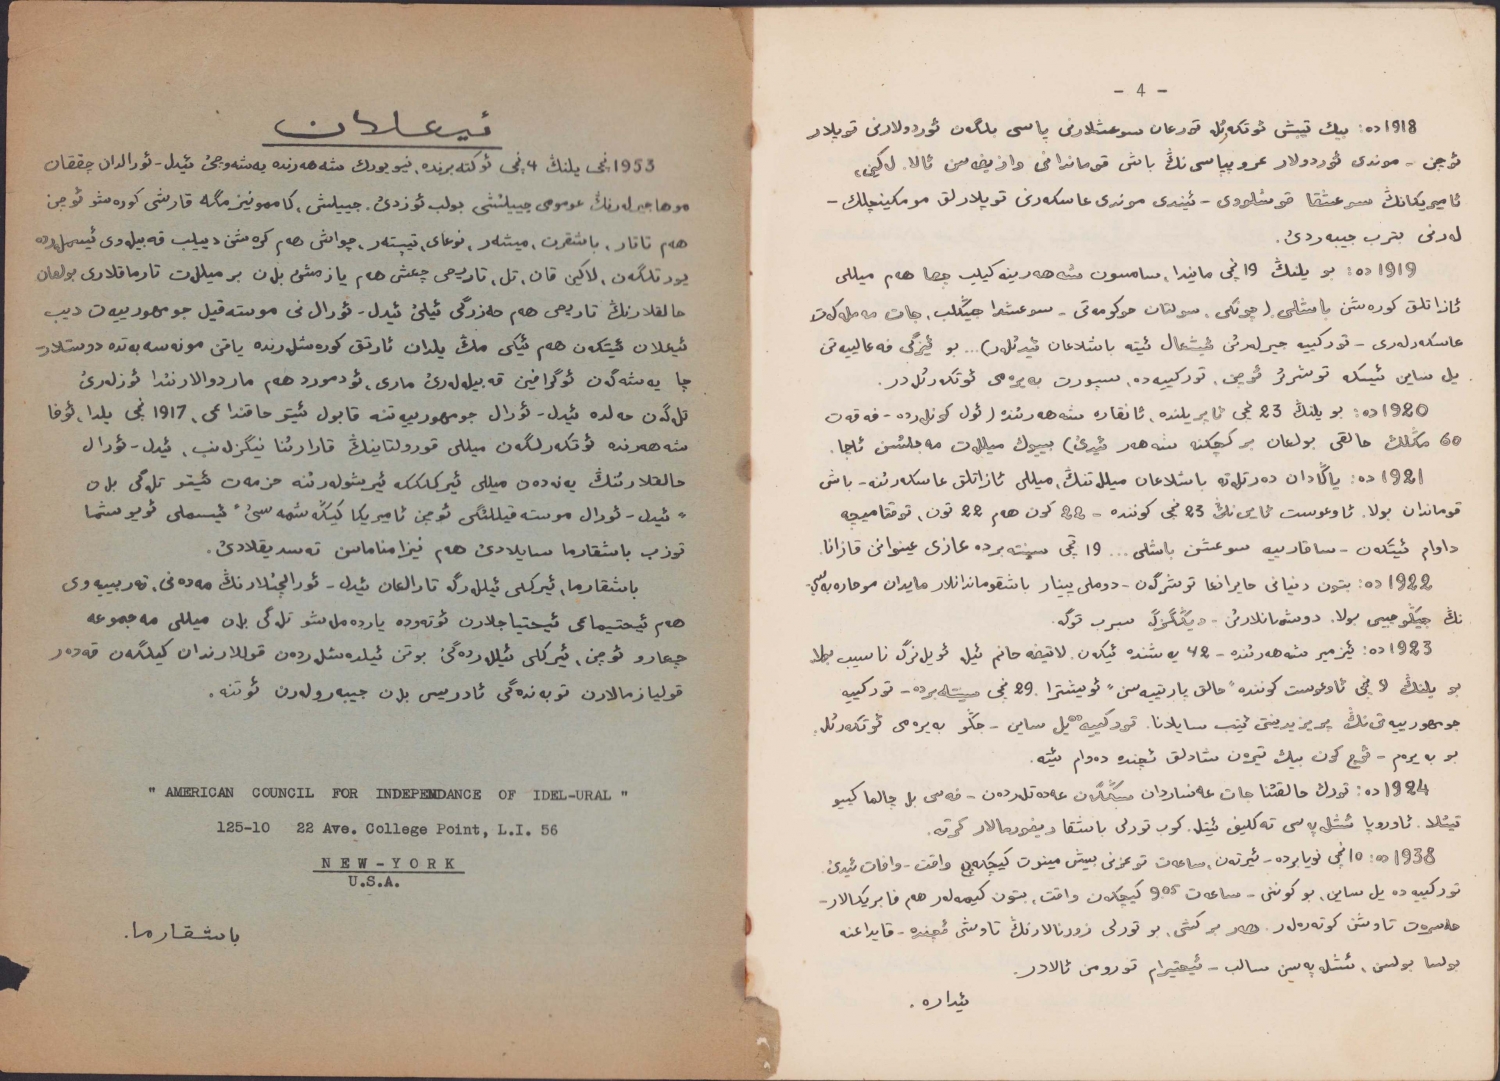 ئیعلان
1953 نچی یلنڭ 4 نچی ئوکتەبرندە، نیو یورك شەهەرندە یەشەوچی ئیدل - ئورالدان چققان
موهاجیرلەرنڭ عومومی جییلشی بولب ئوزدی. جییلش، کاممونیزمگە قارشی کورەشو ئوچن
هەم تاتار، باشقرت، میشەر، نوعای، تیپتەر، چواش هەم کرەشن دییلب قەبیلەوی ئیسملەردە
یورتلگەن، لاکین قان، تل، تاریحی
حالقلارنڭ تاریحی هەم حەزرگی ئیلی ئیدل - ئورال نی موستەقیل جومهورییەت دیب
ئیعلان ئیتکەن هەم ئیکی مڭ یلدان ئارتق کورەشلرندە یاقن مونەسەبەتدە دوستلار-
چا یەشەگەن ئوگرافین قەبیلەلەری ماری، ئودمورد هەم ماردوالارنندا ئوزلەری
تلەگەن حەلدە ئیدل - ئورال جومهورییەتنە قابول ئیتو حاقنداعی، 1917 نچی یلدا، ئوفا
شەهەرندە ئوتکەرلگەن میللی قورولتاینڭ قارارنا نیگزلەنب، ئیدل - ئورال
حالقلارینڭ یەنەدەن میللی ئیرکلککە ئیرشولەرنە حزمەت ئیتو تلەگی بلەن
" ئیدل - ئورال موستەقیللگی ئوچن ئامیریکا کیڭەشمەسی " ئیسملی ئویوشما
توزب باشقارما سایلادی هەم نیزامناماسن تەسدیقلادی.
باشقارما، ئیرکلی ئیللرگە تارالعان ئیدل - ئورالچیلارنڭ مەدەنی، تەربییەوی
هەم ئیجتیماعی ئیحتیاجلارن ئوتەودە یاردەملەشو تلەگی بلەن میللی مەجموعە
چعارو ئوچن، ئیرکلی ئیللردەگی بوتن ئیلدەشلردەن قوللارندان کیلگەن قەدەر
قولیازمالارن توبەندەگی ئادریس بلەن جیبەرولەرن ئوتنە.
" AMERICAN COUNCIL FOR INDEPENDANCE OF IDEL-URAL "
125-10 22 Ave. College Point, L.I. 56
NEW-YORK
U.S.A.
باشقارما.
- 4 -
1918 دە: بیك تیبش ئوتکەرلە تورعان سوعشلارنی پاسی بلگەن ئوردولارنی تویلار
ئوچن - موندی ئوردولار عروپپاسی نڭ باش قوماندانی وازیفەسن ئالا. لەکین،
ئامیریکانڭ سوعشقا قوشلودی - ئیندی موندی عاسکەرنی تویلارلق مومکینچلك -
لەرنی بترب جیبەردی.
1919 دە: بو یلنڭ 19 نچی مایندا، سامسون شەهەرینە کیلیب چعا هەم میللی
ئازاتلق کورەشن باشلی. ( چونکی، سولتان حوکومەتی - سوعشدا جیڭلب، جات مەملەکەت
عاسکەرلەری - تورکییە جیرلەرن ئیشعال ئیتە باشلاعان ئیدلەر) ... بو ئیزگی فەعالییەتی
یل ساین ئیسکە توشرر ئوچن، تورکییەدە، سپورت بەیرەمی ئوتکەرلەدر.
1920 دە: بو یلنڭ 23 نچی ئاپریلندە، ئانقارە شەهەرندە ( ئول کونلەردە - فەقەت
60 مڭلك حالقی بولعان بر کچکنە شەهەر ئیدی) بییوك میللەت مەجلسن ئاچا.
1921 دە: یاڭادان دەرتلەنە باشلاعان میللەتنڭ، میللی ئازاتلق عاسکەرنە - باش
قوماندان بولا. ئاوعوست ئایی نڭ 23 نچی کوننندە - 22 کون هەم 22 تون، توقتامیچە
داوام ئیتکەن - ساقارییە سوعشن باشلی ... 19 نچی سینتەبردە عازی عینوانن قازانا.
1922 دە: بتون دنیانی حایرانعا توشرگەن - دوملی پینار باشقومماندانلار مایدان موحارەبەسی-
نڭ جیڭوچیسی بولا. دوشمانلارن - دیڭگزگە سیرب توگە.
1923 دە: ئیزمیر شەهەرندە - 42 یەشندە ئیکەن. لاتیفە حانم ئیلە ئویلنرگە ناسیب بولا.
بو یلنڭ 9 نچی ئاوعوست کوننندە " حالق پارتییەسن " ئویشترا. 29 نچی - تورکییە
جومهورییەتی نڭ پریزیدینتی ئیتب سایلانا. تورکییەدە یل ساین - جڭو بەیرەمی ئوتکەرلە.
بو بەیرەم - ئوچ کون بیك تیرەن شادلق ئچندە دەوام ئیتە.
1924 دە: تورك حالقننا جات عەنساردان عەدەتلەردەن - فەسی بل چالما کییو
تیتلا. ئاوروپا ئشلەپەسی تەکلیف ئیتلە. کوب تورلی باشقا ریفورمالار کرتە.
1938 دە: 10 نچی نویابردە - ئیرتەن، ساعەت توعزنی بیش مینوت کیچکەن واقت - وافات ئیدی.
تورکییەدە یل ساین، بو کوننی - ساعەت 9.05 کیچکەن واقت، بتون کیمەلەر هەم فابریکالار -
حەسرەت تاوشن کوتەرەلەر. هەر بر کشی، بو تورلی زورنالارنڭ تاوشی ئچندە - قایداعنە
بولسا بولسن، ئشلەپەسین سالب - ئیحتیرام تورومن ئالادر.
ئیدارە.